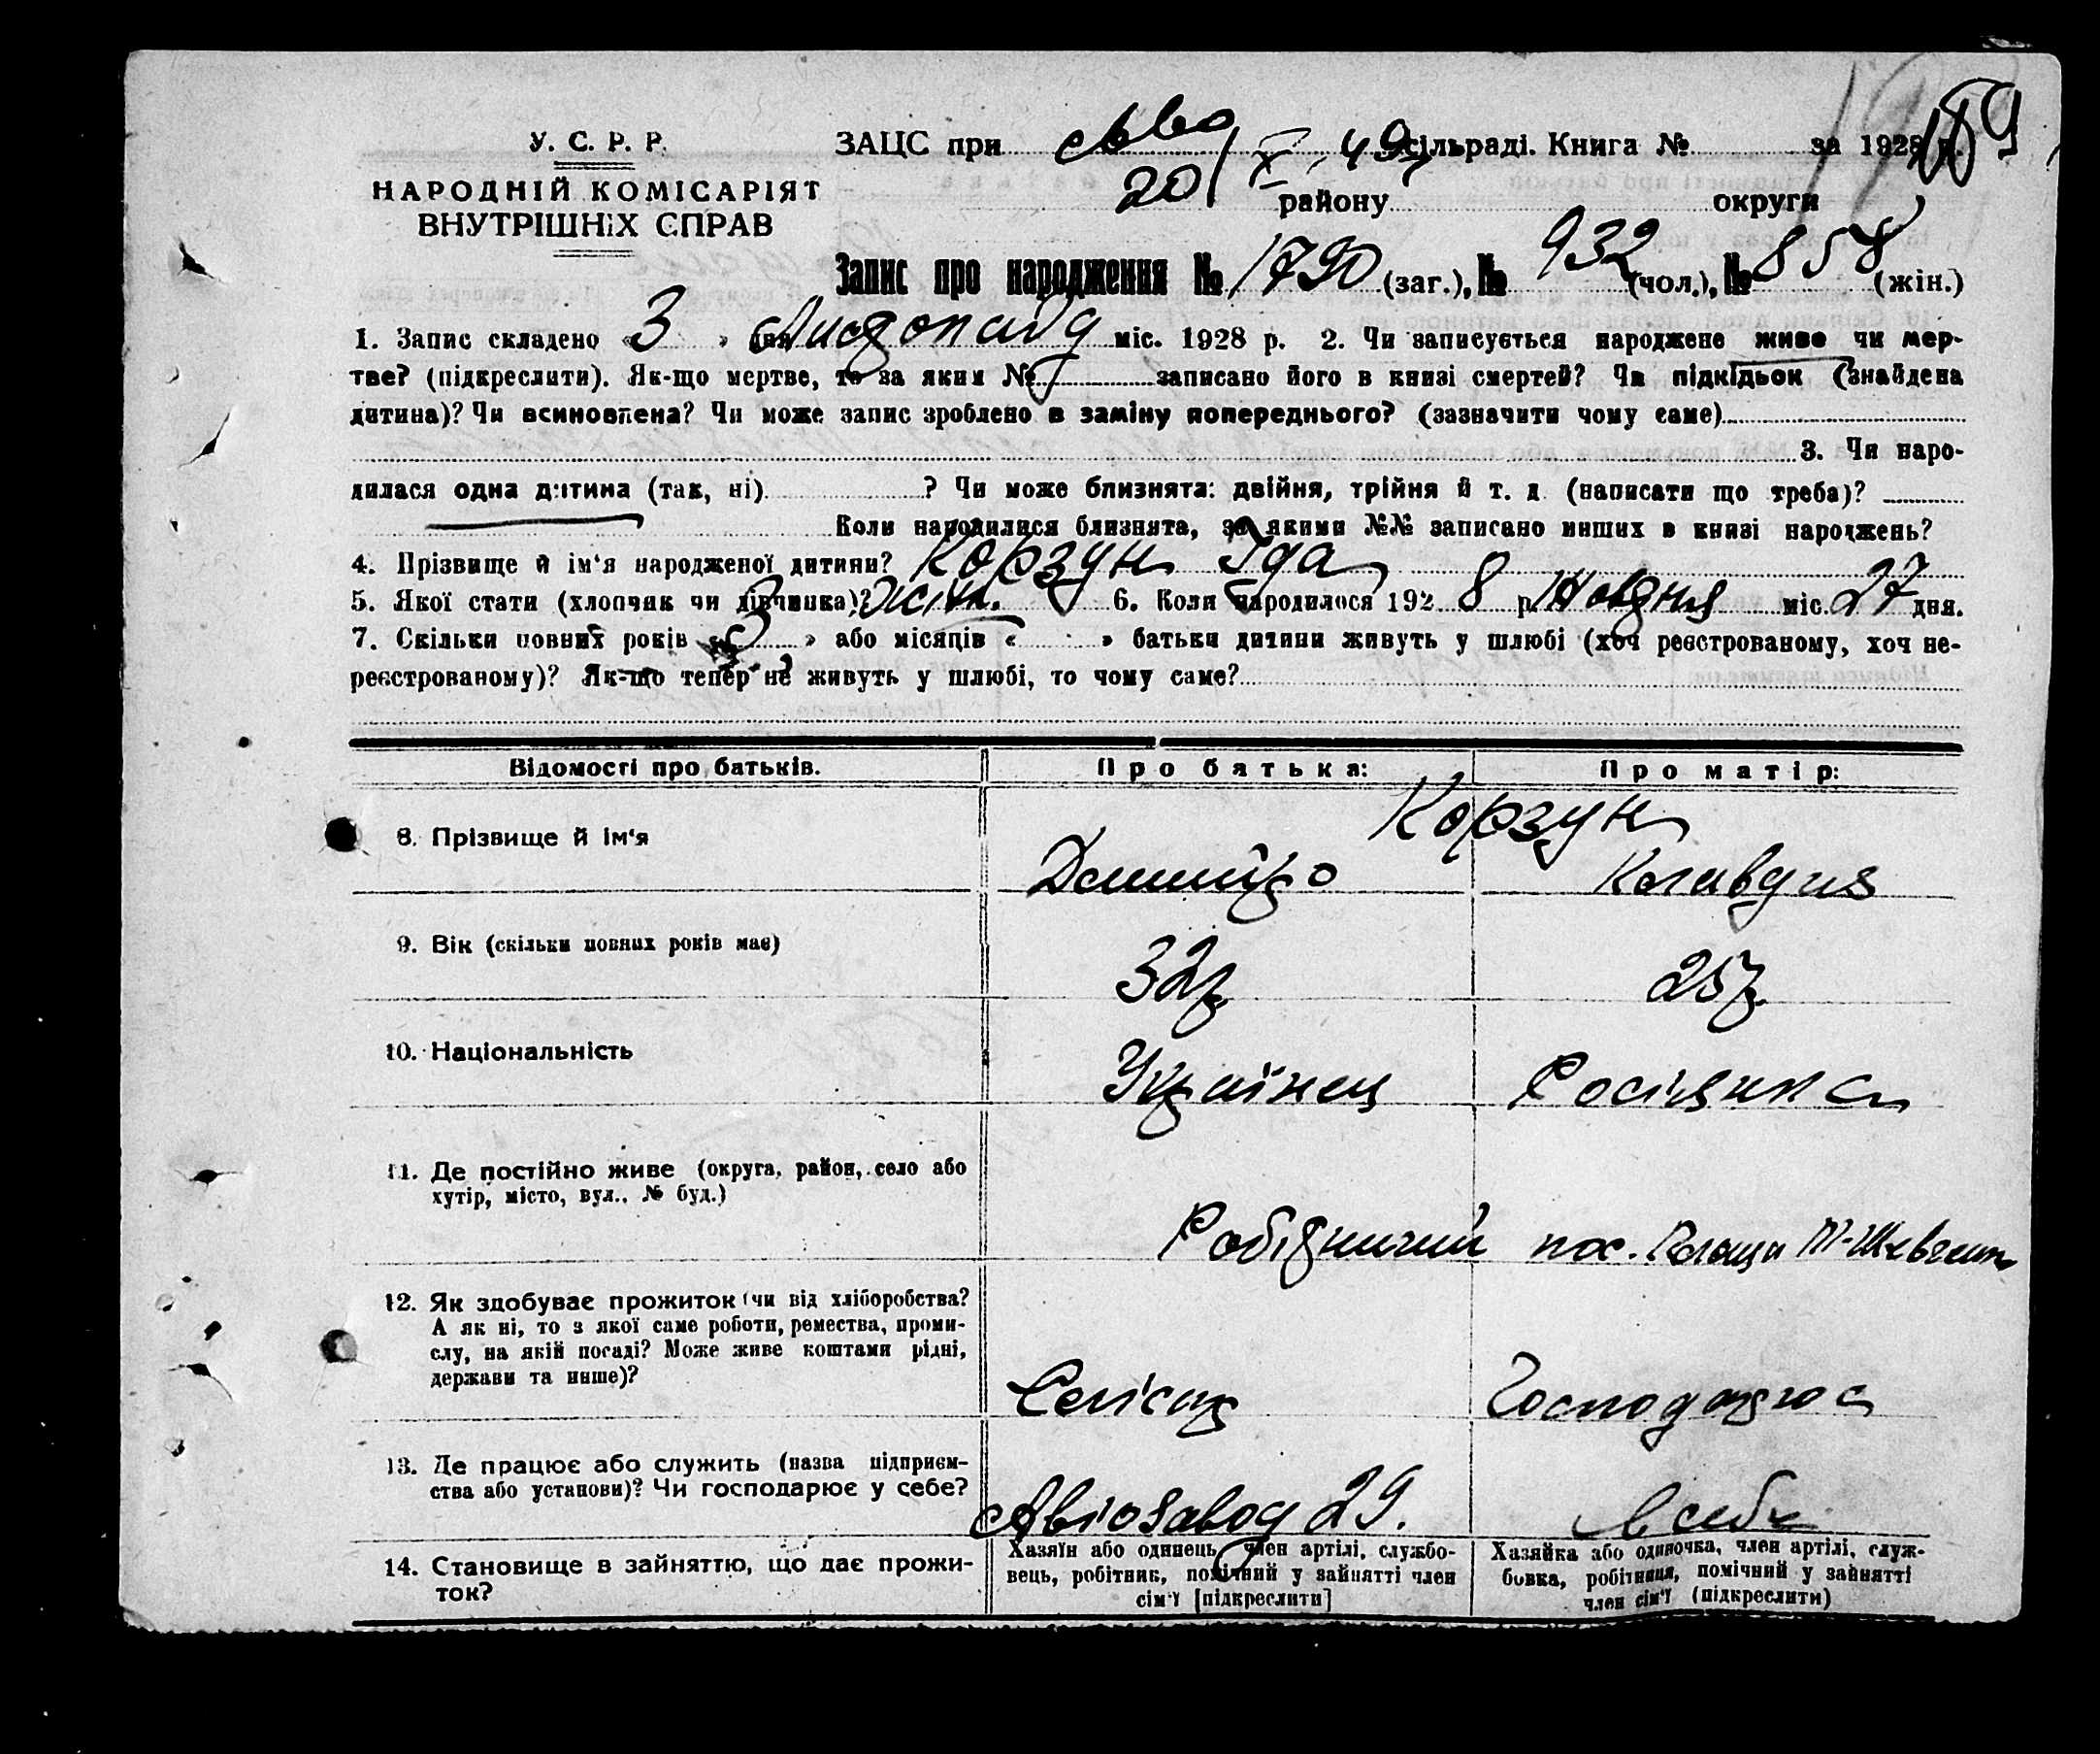 У. С. Р. Р.
НАРОДНІЙ КОМІСАРІЯТ
ВНУТРІШНІХ СПРАВ
ЗАЦС при сільраді. Книга № за 1928 р. 189
20/X 49 району округи
Запис про народження № 1790 (заг.), № 932 (чол.), № 858 (жін.)
1. Запис складено « 3 » дня Листопаду міс. 1928 р. 2. Чи записується народжене живе чи мер-
тве? (підкреслити). Як-що мертве, то за яким № записано його в книзі смертей? Чи підкідьок (знайдена
дитина)? Чи всиновлена? Чи може запис зроблено в заміну попереднього? (зазначити чому саме)
3. Чи наро-
дилася одна дитина (так, ні) ? Чи може близнята: двійня, трійня й т. д. (написати що треба)?
Коли народилися близнята, за якими №№ записано инших в книзі народжень?
4. Прізвище й ім'я народженої дитини? Корзун Іда
5. Якої стати (хлопчик чи дівчинка)? Жін. 6. Коли народилося 192 8 р. Жовтня міс. 27 дня.
7. Скільки повних років « 3 » або місяців « » батьки дитини живуть у шлюбі (хоч реєстрованому, хоч не-
реєстрованому)? Як-що тепер не живуть у шлюбі, то чому саме?
Відомості про батьків. Про батька: Про матір:
Корзун
8. Прізвище й ім'я Дмитро Клавдия
9. Вік (скільки повних років має) 32 р. 25 р.
10. Національність Українец Росіянка
11. Де постійно живе (округа, район, село або
хутір, місто, вул., № буд.)
Робітничий пос. Площа Т-Шевченк
12. Як здобуває прожиток (чи від хліборобства?
А як ні, то з якої саме роботи, ремества, проми-
слу, на якій посаді? Може живе коштами рідні,
держави та инше)?
Слісар Господарює
13. Де працює або служить (назва підприєм-
ства або установи)? Чи господарює у себе?
Авіозавод 29. В себе
14. Становище в зайняттю, що дає прожи-
ток?
Хазяїн або одинець, член артілі, службо-
вець, робітник, помічний у зайнятті член
сім'ї [підкреслити]
Хазяйка або одиночка, член артілі, служ-
бовка, робітниця, помічний у зайнятті
член сім'ї (підкреслити)